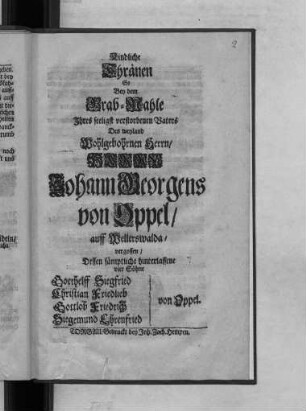 2
Kindliche
Thränen
So
Bey dem
Grab-Mahle
Ihres seeligst verstorbenen Vaters
Des weyland
Wohlgebohrnen Herrn/
HERRN
Johann Georgens
von Oppel/
auff Wellerswalda/
vergossen/
Dessen sämptliche hinterlassene
vier Söhne
Gotthelff Siegfried
Christian Friedlieb
Gottlob Friedrich
Siegemund Ehrenfried
von Oppel.
TORGAU Gedruckt bey Joh. Zach. Hempen.